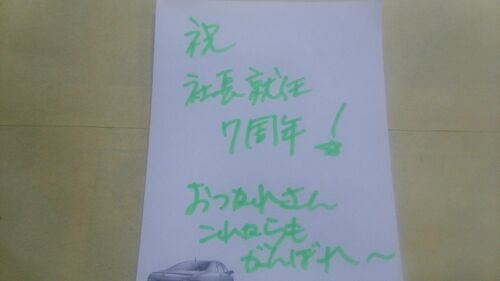 祝
社長就任
7周年!
おつかれさん
これならも
がんばれ〜